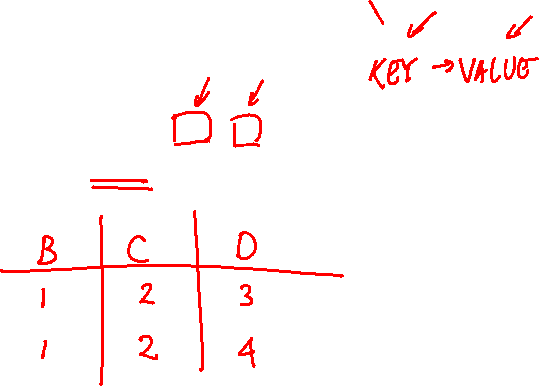 KEY → VALUE
B C D
1 2 3
1 2 4